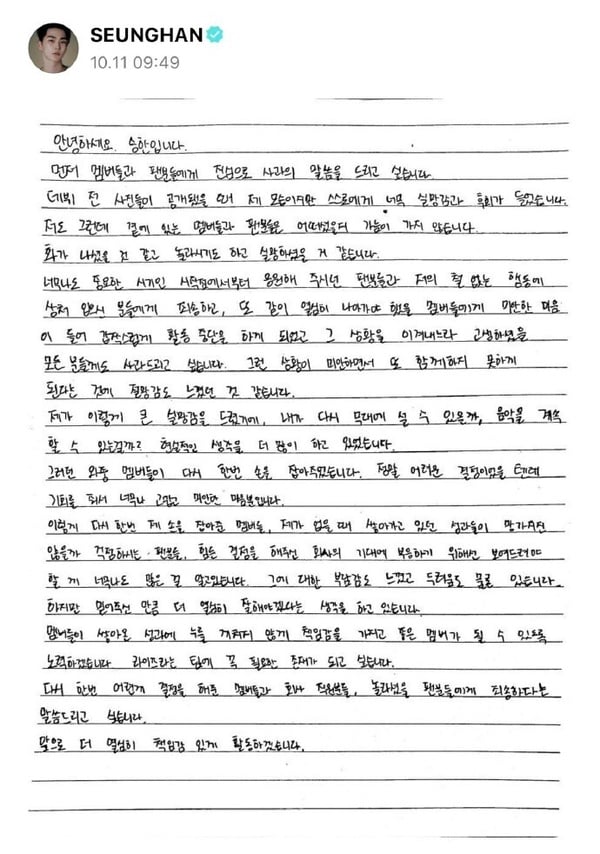 SEUNGHAN
10.11 09:49
안녕하세요. 승한입니다.
먼저 멤버들과 팬분들에게 진심으로 사과의 말씀을 드리고 싶습니다.
데뷔 전 사진들이 공개됐을 때 제 모습이지만 스스로에게 너무 실망감과 후회가 들었습니다.
저도 그런데 곁에 있는 멤버들과 팬분들은 어떠셨을지 가늠이 가지 않습니다.
화가 나셨을 것 같고 놀라시기도 하고 실망하셨을 거 같습니다.
너무나도 중요한 시기인 시작점에서부터 응원해 주시던 팬분들과 저의 철 없는 행동에
상처 입으신 분들에게 죄송하고, 또 같이 열심히 나아가야 했을 멤버들에게 미안한 마음
이 들어 갑작스럽게 활동 중단을 하게 되었고 그 상황을 이겨내느라 고생하셨을
모든 분들께도 사과드리고 싶습니다. 그런 상황이 미안하면서 또 함께하지 못하게
된다는 것에 절망감도 느꼈던 것 같습니다.
제가 이렇게 큰 실망감을 드렸기에, 내가 다시 무대에 설 수 있을까, 음악을 계속
할 수 있는걸까? 현실적인 생각을 더 많이 하고 있었습니다.
그러던 와중 멤버들이 다시 한번 손을 잡아주었습니다. 정말 어려운 결정이었을 텐데
기회를 줘서 너무나 고맙고 미안한 마음뿐입니다.
이렇게 다시 한번 제 손을 잡아준 멤버들, 제가 없을 때 쌓아가고 있던 성과들이 망가지진
않을까 걱정하시는 팬분들, 힘든 결정을 해주신 회사의 기대에 부응하기 위해선 보여드려야
할 게 너무나도 많은 걸 알고있습니다. 그에 대한 부담감도 느꼈고 두려움도 물론 있습니다.
하지만 믿어주신 만큼 더 열심히 잘해야겠다는 생각을 하고 있습니다.
멤버들이 쌓아온 성과에 누를 끼치지 않게 책임감을 가지고 좋은 멤버가 될 수 있도록
노력하겠습니다 라이즈라는 팀에 꼭 필요한 존재가 되고 싶습니다.
다시 한번 어렵게 결정을 해준 멤버들과 회사 직원분들, 놀라셨을 팬분들에게 죄송하다는
말씀드리고 싶습니다.
앞으로 더 열심히 책임감 있게 활동하겠습니다.